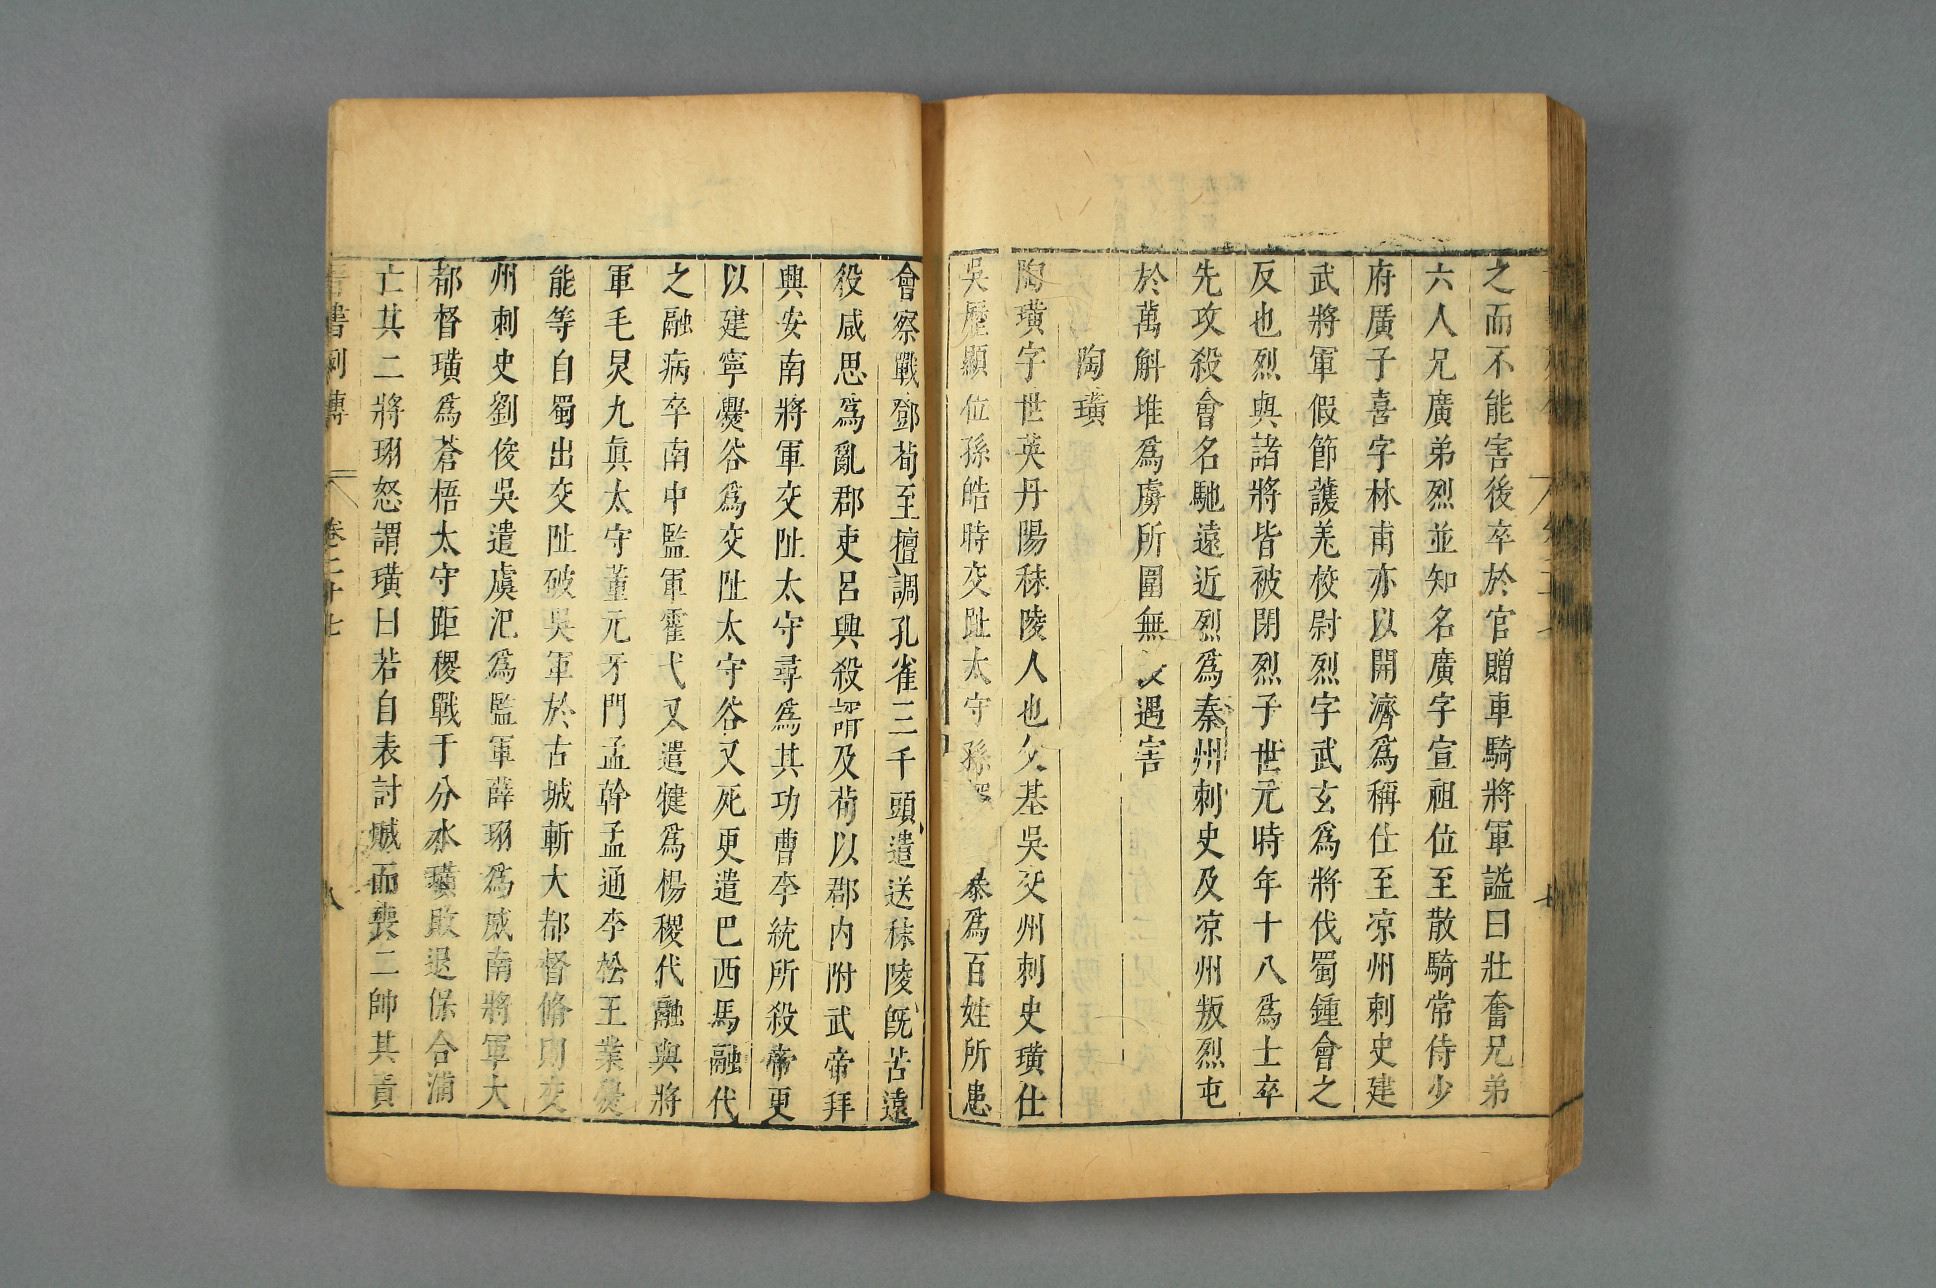 之而不能害後卒於官贈車騎將軍諡曰壯奮兄弟
六人兄廣弟烈並知名廣字宣祖位至散騎常侍少
府廣子喜字林甫亦以開濟爲稱仕至凉州刺史建
武將軍假節護羌校尉烈字武玄爲將伐蜀鍾會之
反也烈與諸將皆被閉烈子世元時年十八爲士卒
先攻殺會名馳遠近烈爲秦州刺史及凉州叛烈屯
於萬斛堆爲虜所圍無 遇害
陶璜
陶璜字世英丹陽秣陵人也父基吳交州刺史璜仕
吳歷顯位孫皓時交趾太守孫 㤗爲百姓所患
會察戰鄧荀至擅調孔雀三千頭遣送秣陵旣苦遠
役咸思爲亂郡吏呂興殺諝及荀以郡內附武帝拜
興安南將軍交阯太守尋爲其功曹李統所殺帝更
以建寧爨谷爲交阯太守谷又死更遣巴西馬融代
之融病卒南中監軍霍弋又遣犍爲楊稷代融與將
軍毛炅九眞太守董元牙門孟幹孟通李松王業爨
能等自蜀出交阯破吳軍於古城斬大都督脩則交
州刺史劉俊吳遣虞汜爲監軍薛珝爲威南將軍大
都督璜爲蒼梧太守距稷戰于分水璜敗退保合浦
亡其二將珝怒謂璜曰若自表討賊而喪二帥其責
晉書列傳 卷二十七 八